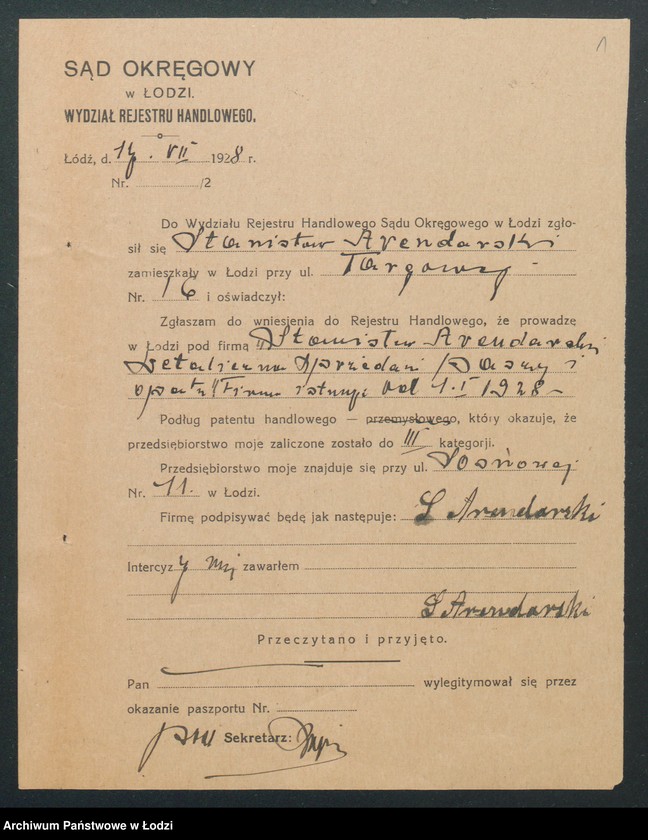 1
SĄD OKRĘGOWY
w ŁODZI.
WYDZIAŁ REJESTRU HANDLOWEGO.
Łódź, d. 17. VII 1928 r.
Nr. /2
Do Wydziału Rejestru Handlowego Sądu Okręgowego w Łodzi zgło-
sił się Stanisław Arendarski
zamieszkały w Łodzi przy ul. Targowej
Nr. 16 i oświadczył:
Zgłaszam do wniesjenia do Rejestru Handlowego, że prowadzę
w Łodzi pod firmą "Stanisław Arendarski
Detaliczna sprzedaż paszy i
opału" Firma istnieje od 1. I 1928 –
Podług patentu handlowego — przemysłowego, który okazuje, że
przedsiębiorstwo moje zaliczone zostało do III kategorji.
Przedsiębiorstwo moje znajduje się przy ul. Sosnowej
Nr. 11. w Łodzi.
Firmę podpisywać będę jak następuje: S Arendarski
Intercyzy nie zawarłem
S Arendarski
Przeczytano i przyjęto.
Pan wylegitymował się przez
okazanie paszportu Nr.
Sekretarz:
Archiwum Państwowe w Łodzi